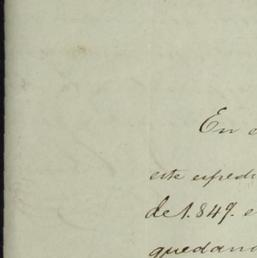 En
este espedi
de 1.849. e
quedan